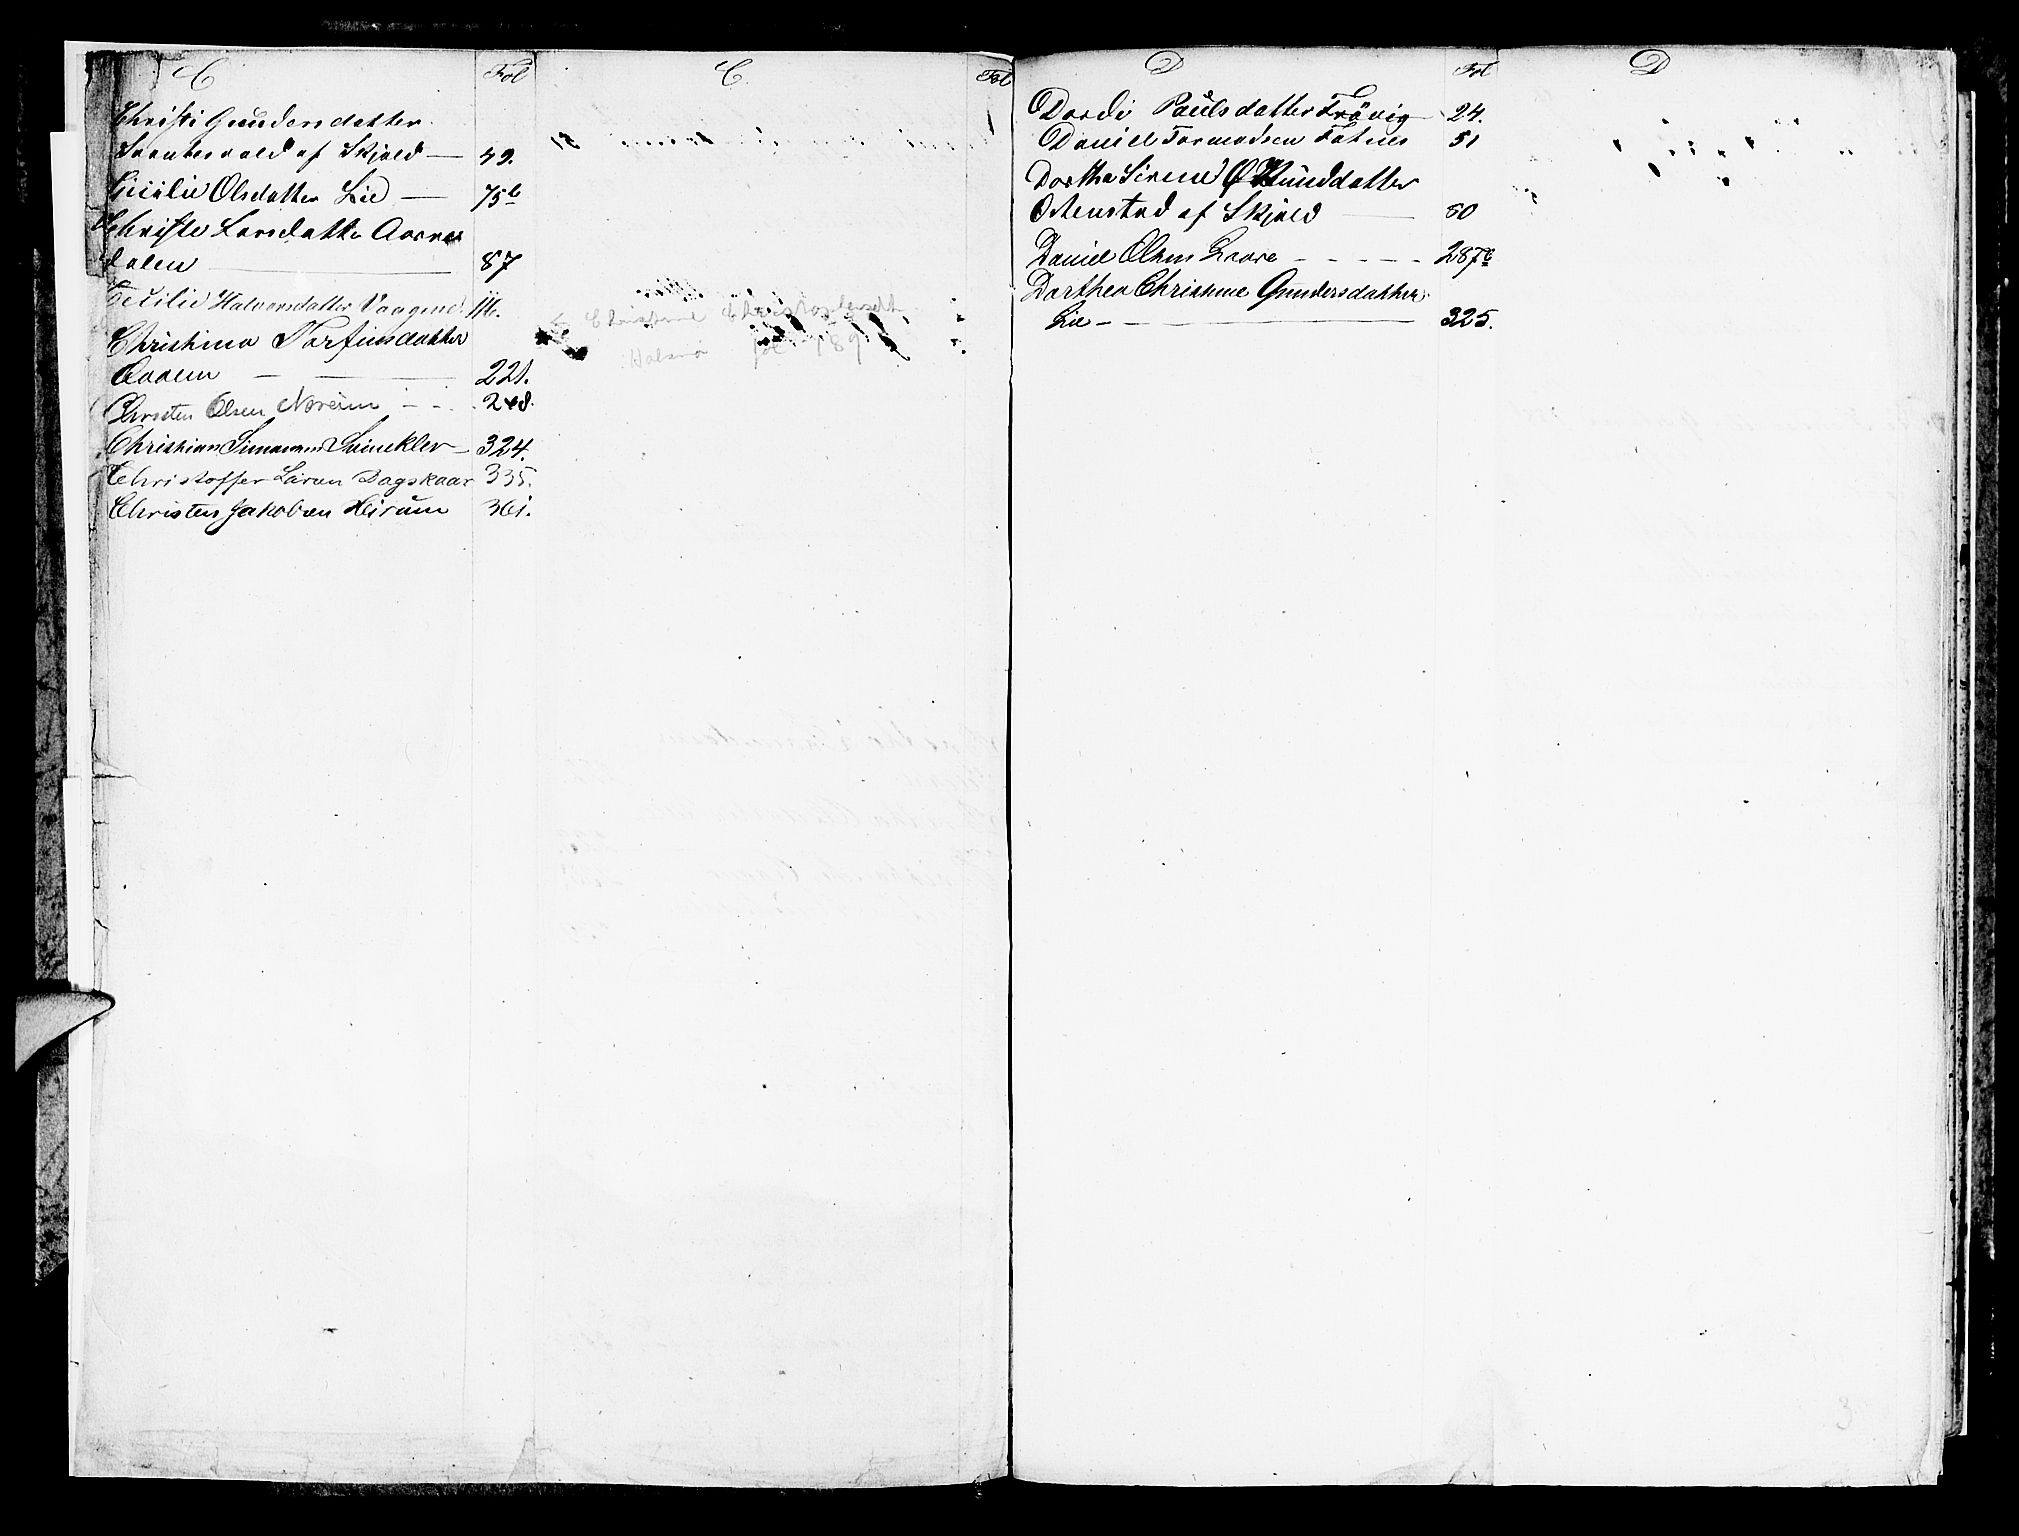 C
Fol
Christi Gundersdatter
af Skjold — 49.
Cicilie Olsdatter Lie — 75b
Christe Larsdatter Aarres
dalen — 87
Cecilie Halvorsdatter Vaagend 116.
Christina Torfinsdatter
Aadlen — 221.
Christen Olsen Noreim - - 248.
Christian Simonsen Svineklev — 324.
Christoffer Larsen Dagskaar 335.
Christen Jakobsen Heraum 361.
C.
Fol
Christine Christophersdt.
Halsnø fol 189
D
Fol
Dordi Paulsdatter Frövig 24.
Daniel Tormodsen Fatnes 51
Dorthea Sirene Omunddatter
Ostenstad af Skjold — 80
Daniel Olsen - - - - - 287b
Dorthea Christine Gundersdatter
Lie - - — 325.
D
3